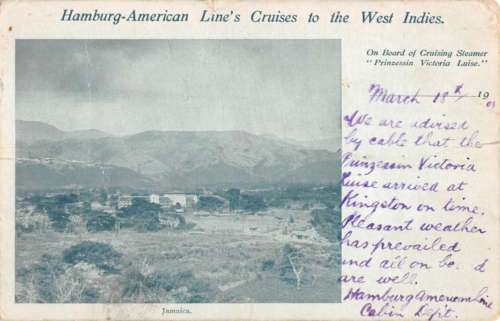 Hamburg-American Line's Cruises to the West Indies.
On Board of Cruising Steamer
"Prinzessin Victoria Luise."
March 18th 1905
We are advised
by cable that the
Prinzessin Victoria
Luise arrived at
Kingston on time.
Pleasant weather
has prevailed
and all on board
are well.
Hamburg American Line
Cabin Dept.
Jamaica.